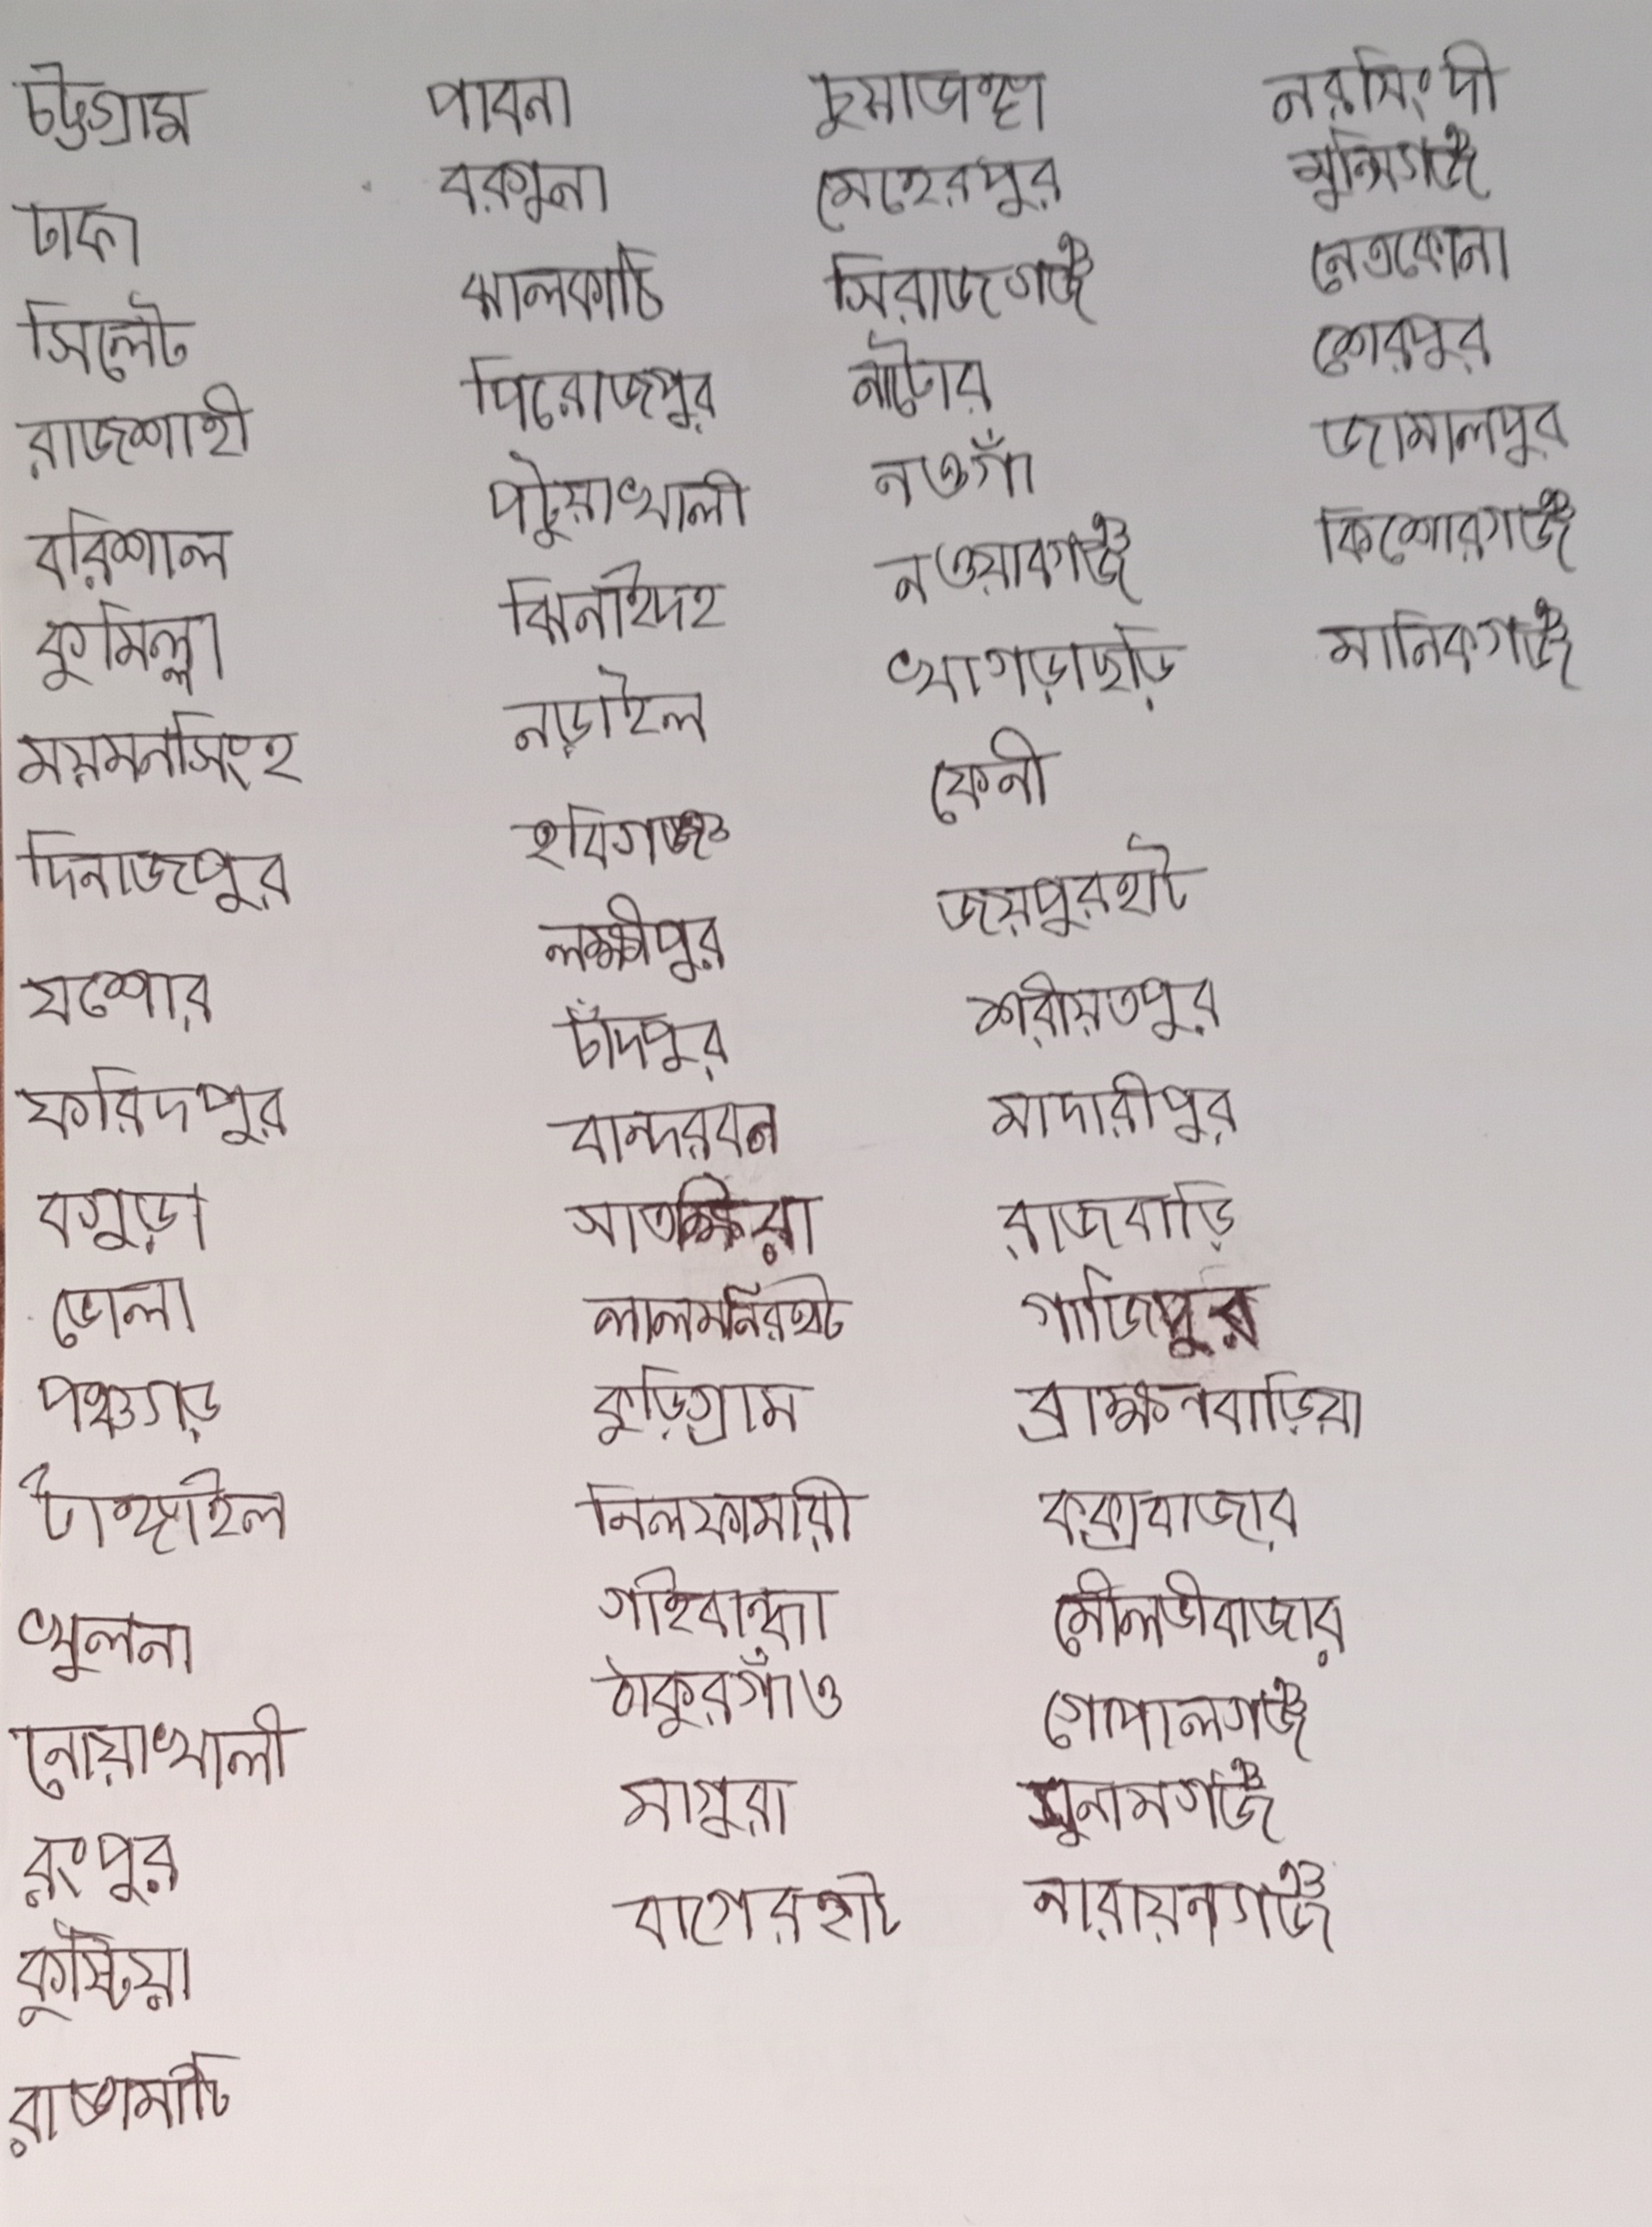 চট্টগ্রাম
ঢাকা
সিলেট
রাজশাহী
বরিশাল
কুমিল্লা
ময়মনসিংহ
দিনাজপুর
যশোর
ফরিদপুর
বগুড়া
ভোলা
পঞ্চগড়
টাঙ্গাইল
খুলনা
নোয়াখালী
রংপুর
কুষ্টিয়া
রাঙ্গামাটি
পাবনা
বরগুনা
ঝালকাঠি
পিরোজপুর
পটুয়াখালী
ঝিনাইদহ
নড়াইল
হবিগঞ্জ
লক্ষ্মীপুর
চাঁদপুর
বান্দরবন
সাতক্ষিরা
লালমনিরহাট
কুড়িগ্রাম
নিলফামারী
গাইবান্ধা
ঠাকুরগাঁও
মাগুরা
বাগেরহাট
চুয়াডাঙ্গা
মেহেরপুর
সিরাজগঞ্জ
নাটোর
নওগাঁ
নওয়াবগঞ্জ
খাগড়াছড়ি
ফেনী
জয়পুরহাট
শরীয়তপুর
মাদারীপুর
রাজবাড়ি
গাজিপুর
ব্রাক্ষনবাড়িয়া
কক্সবাজার
মৌলভীবাজার
গোপালগঞ্জ
সুনামগঞ্জ
নারায়নগঞ্জ
নরসিংদী
মুন্সিগঞ্জ
নেত্রকোনা
শেরপুর
জামালপুর
কিশোরগঞ্জ
মানিকগঞ্জ